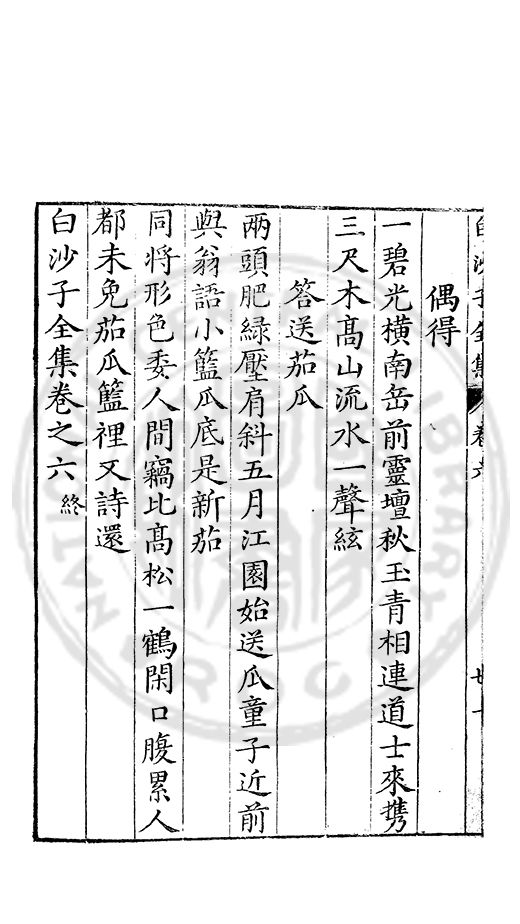 偶得
一碧光橫南岳前靈壇秋玉青相連道士來携
三尺木高山流水一聲絃
答送茄瓜
兩頭肥綠壓肩斜五月江園始送瓜童子近前
與翁語小籃瓜底是新茄
同將形色委人間竊比高松一鶴閑口腹累人
都未免茄瓜籃裡又詩還
白沙子全集卷之六 終